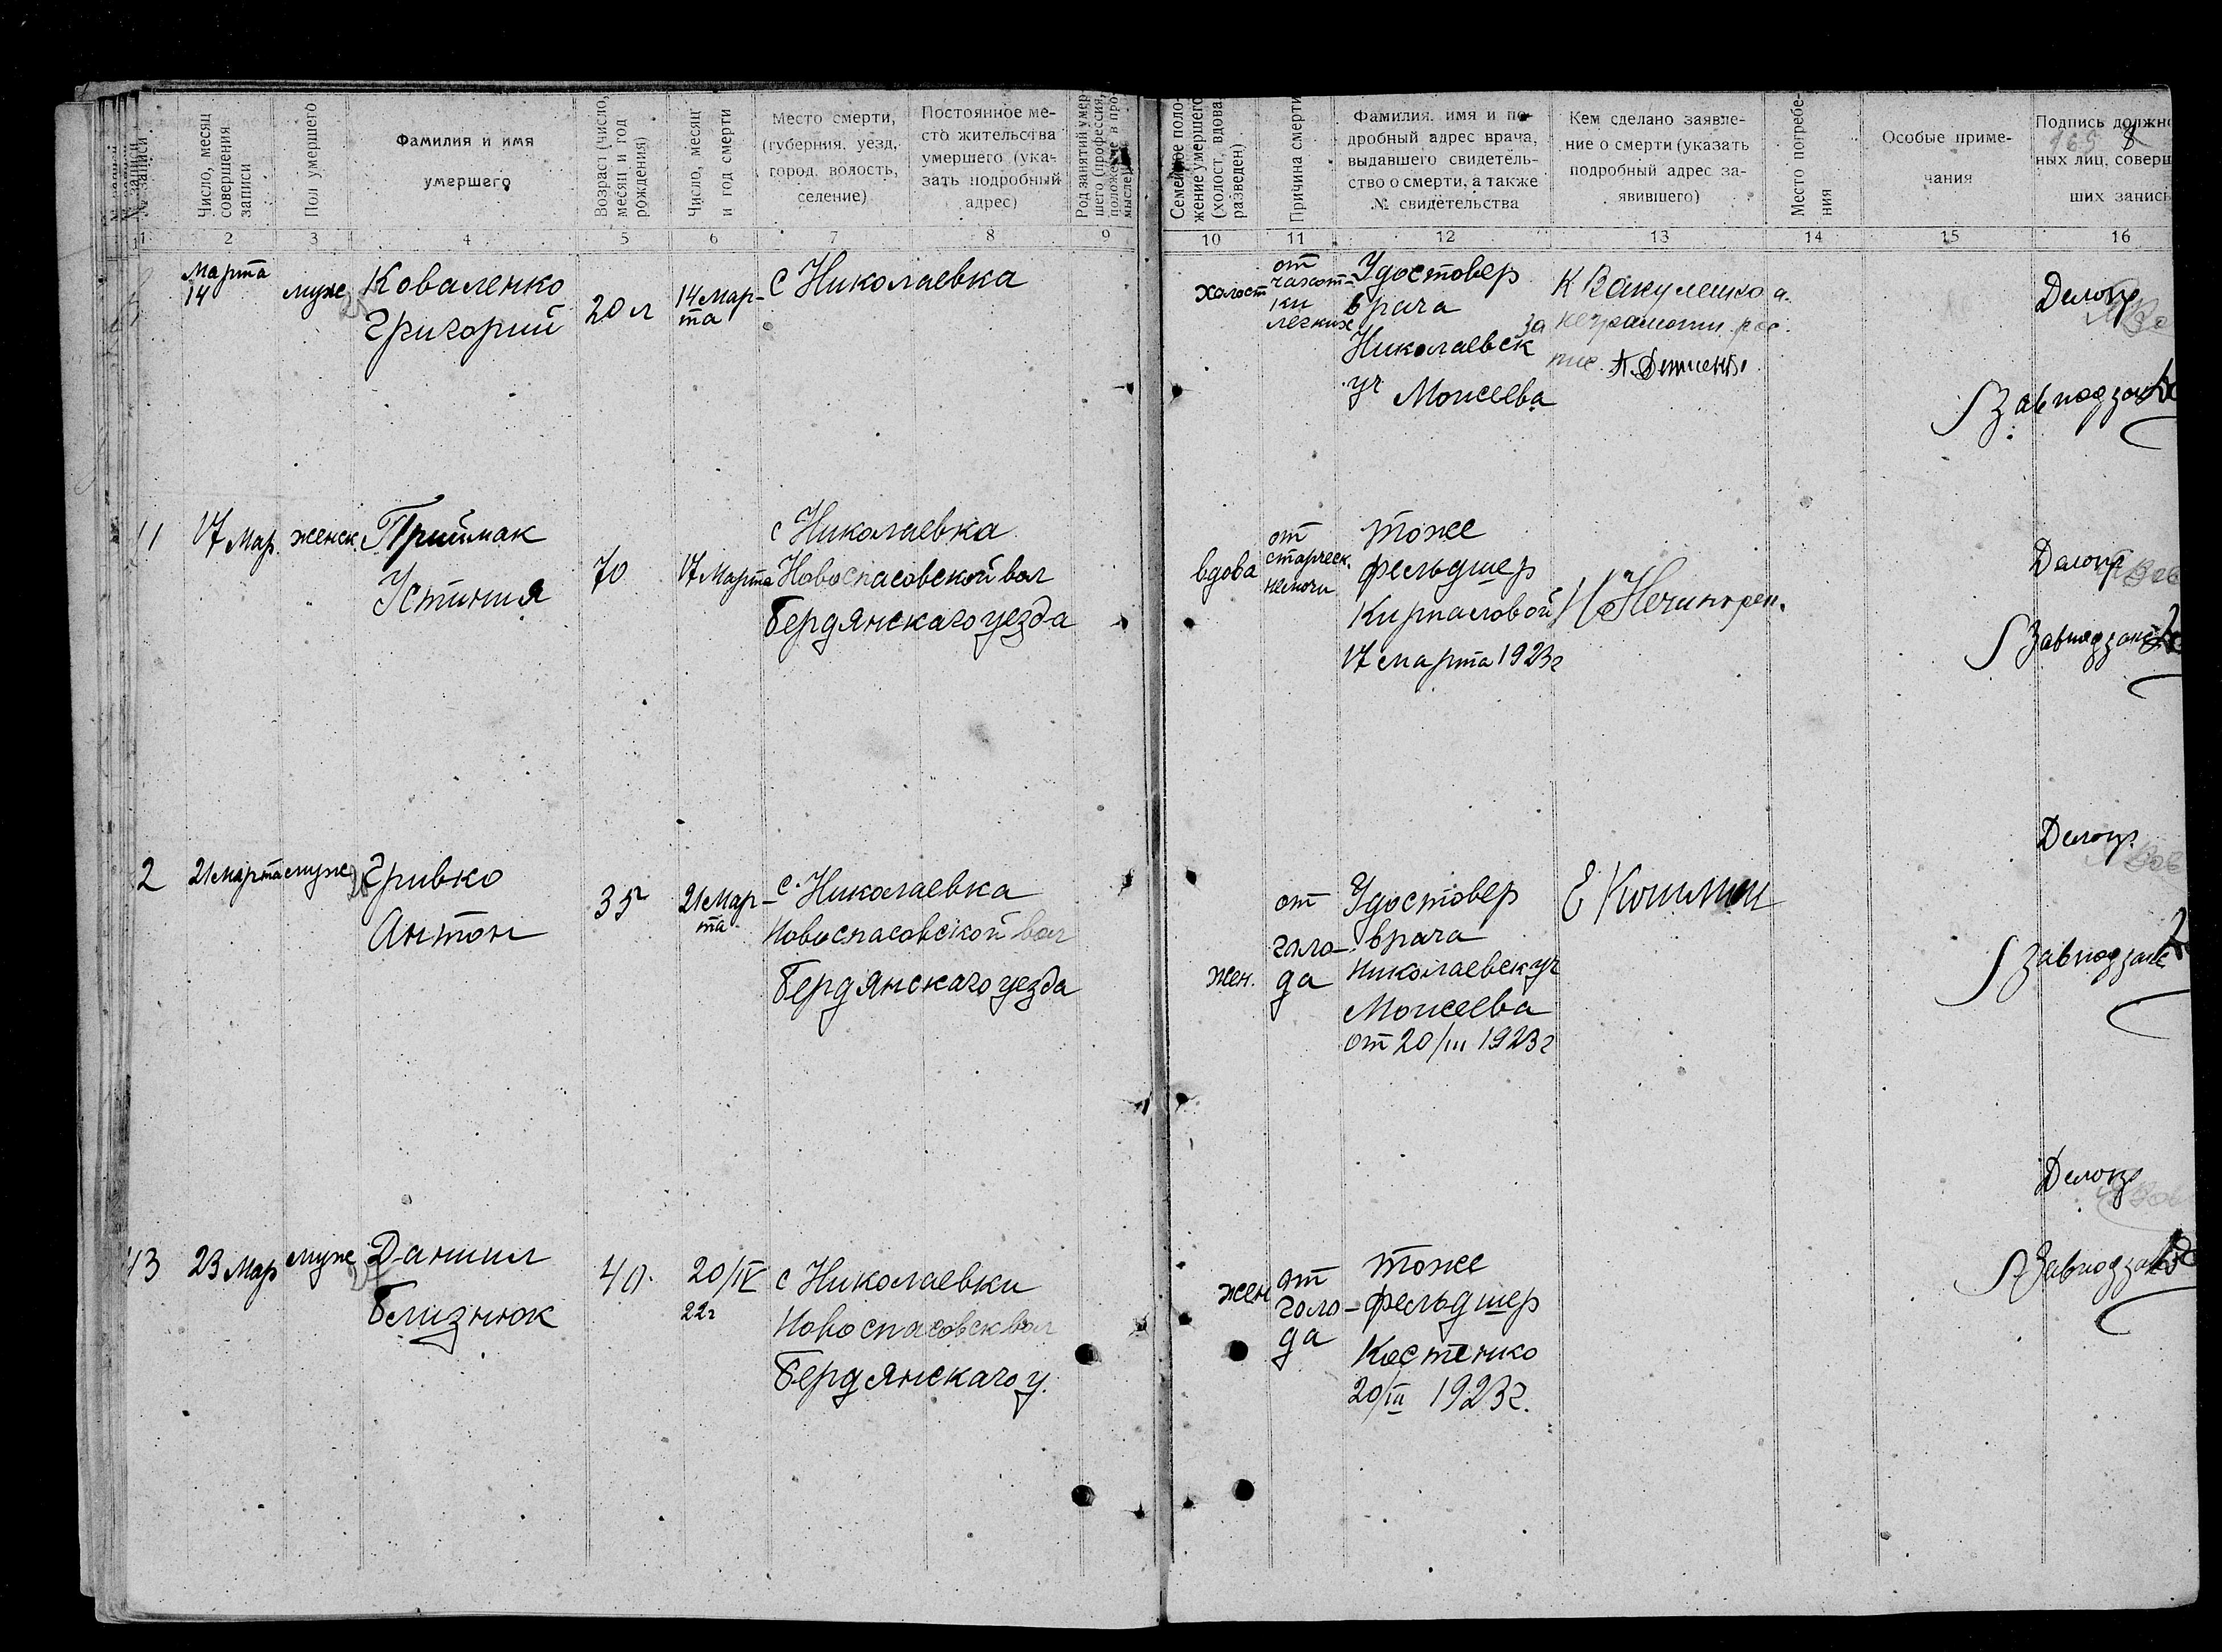 № записи
Число, месяц совершения записи
Пол умершего
Фамилия и имя
умершего
Возраст (число, месяц и год рождения)
Число, месяц и год смерти
Место смерти,
(губерния, уезд,
город, волость,
селение)
Постоянное ме-
сто жительства
умершего (ука-
зать подробный
адрес)
Род занятий умер-
шего (профессия,
положение в про-
мысле
Семейное поло-
жение умершего
(холост, вдова,
разведен)
Причина смерти
Фамилия, имя и по-
дробный адрес врача,
выдавшего свидетель-
ство о смерти, а также
№ свидетельства
Кем сделано заявле-
ние о смерти (указать
подробный адрес за-
явившего)
Место погребе-
ния
Особые приме-
чания
Подпись должн
ных лиц, соверш
ших запись
1 2 3 4 5 6 7 8 9 10 11 12 13 14 15 16
Марта
14
муж
Коваленко
Григорий
20 л
14 Мар-
та
с Николаевка
Холост
от
чахот-
ки
легких
Удостовер
врача
Николаевск
уч Моисеева
К Вакуленко
за неграмотн. рос.
Делопр
Завподзаг
11
17 Мар.
женск.
Приймак
Устиния
70
17 Марта
с Николаевка
Новоспасовской вол
Бердянскаго уезда
вдова
от
старческ.
немочи
тоже
фельдшер
Кирпасовой
17 марта 1923г
Делопр
Завподзаг
2
21 марта
муж
Гривко
Антон
35
21 Мар-
та
с. Николаевка
Новоспасовской вол
Бердянскаго уезда
жен.
от
голо-
да
Удостовер
врача
Николаевск уч
Моисеева
от 20/III 1923г
Делопр.
Завподзаг
43
23 Мар
муж
Даниил
Близнюк
40.
20/IV
22г
с Николаевки
Новоспасовск вол
Бердянскаго у.
жен
от
голо-
да
тоже
фельдшер
Костенко
20/III 1923г.
Делопр
Завподзаг